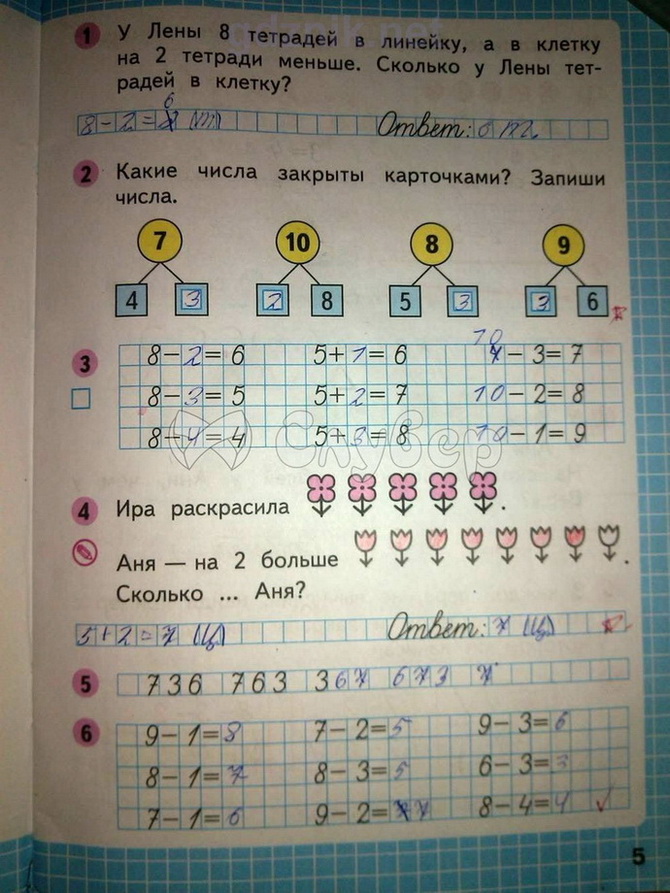 gdzonlik.net
1 У Лены 8 тетрадей в линейку, а в клетку
на 2 тетради меньше. Сколько у Лены тет-
радей в клетку?
6
8-2= (т) Ответ: 6 т.
2 Какие числа закрыты карточками? Запиши
числа.
7 10 8 9
4 3 2 8 5 3 3 6
10
3 8-2=6 5+1=6 -3=7
8-3=5 5+2=7 10-2=8
8-4=4 5+3=8 10-1=9
Скувер
4 Ира раскрасила .
Аня — на 2 больше .
Сколько ... Аня?
5+2=7 (ц) Ответ: 7 (ц)
5 736 763 367 673 7
6 9-1=8 7-2=5 9-3=6
8-1=7 8-3=5 6-3=3
7-1=6 9-2=7 8-4=4
5